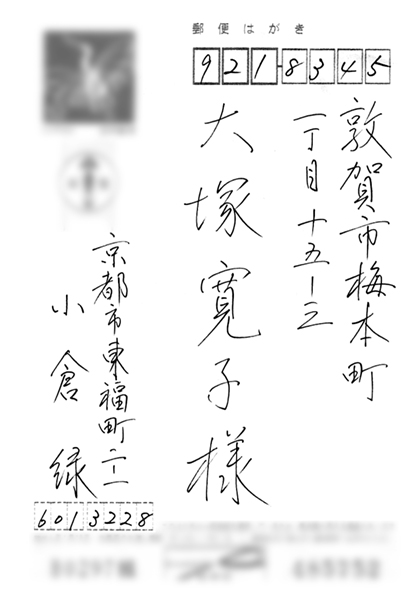 郵便はがき
921-8345
敦賀市梅本町
一丁目十五ー三
大塚寛子様
京都市東福町二ー一
小倉緑
6013228